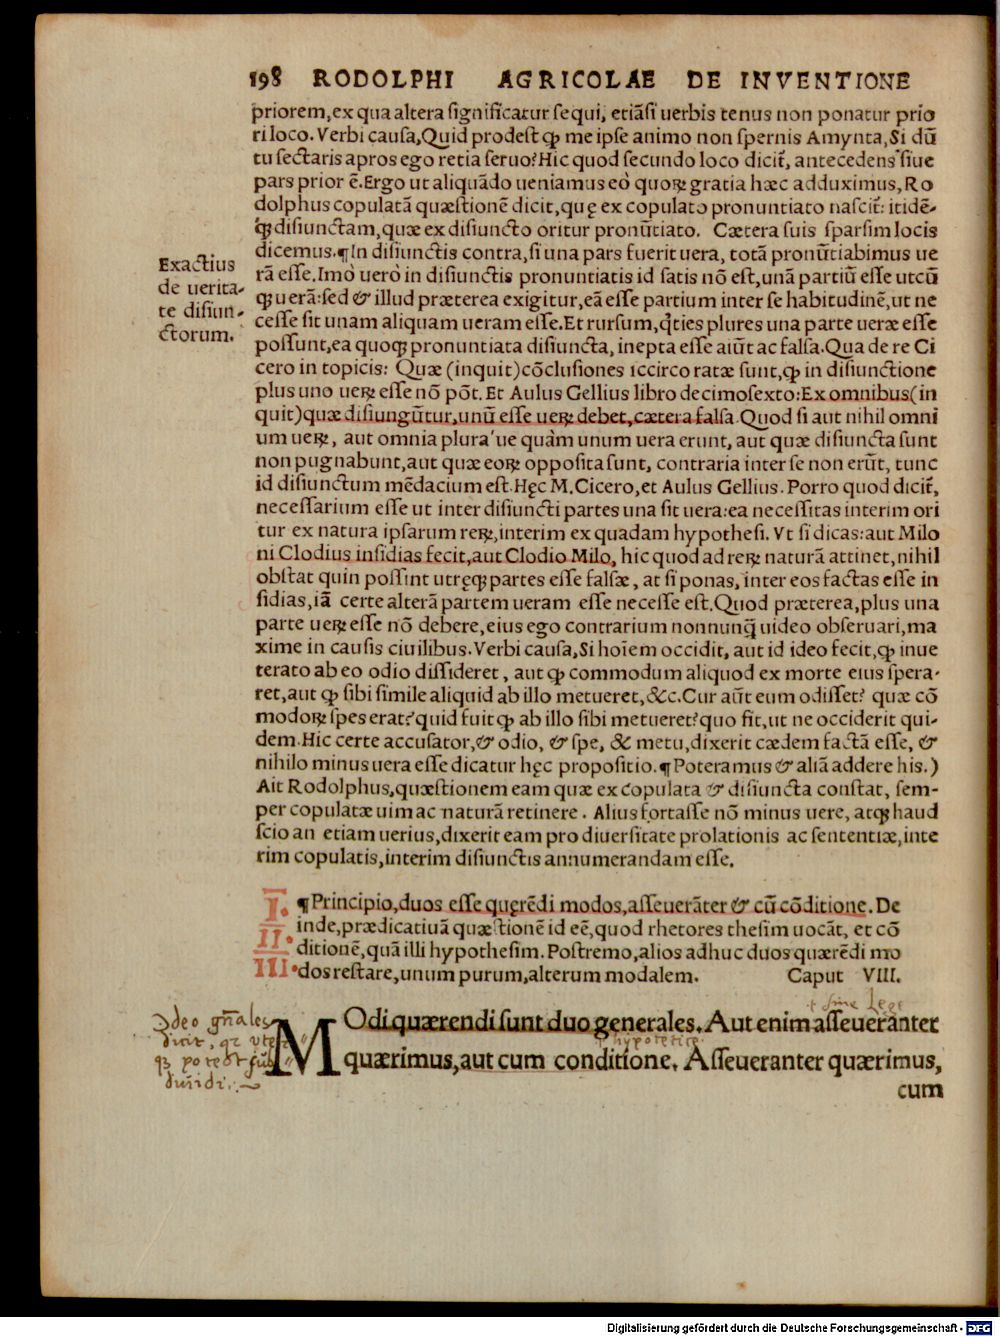 198 RODOLPHI AGRICOLAE DE INVENTIONE
priorem,ex qua altera significatur sequi, etiãsi uerbis tenus non ponatur prio
ri loco. Verbi causa, Quid prodest ꝙ me ipse animo non spernis Amynta, Si dũ
tu sectaris apros ego retia seruo? Hic quod secundo loco dicit̃, antecedens siue
pars prior ẽ. Ergo ut aliquãdo ueniamus eò quoꝝ gratia hæc adduximus, Ro
dolphus copulatã quæstionẽ dicit, quę ex copulato pronuntiato nascit̃: itidẽ-
ꝗ disiunctam, quæ ex disiuncto oritur pronũtiato. Cætera suis sparsim locis
dicemus. ¶In disiunctis contra, si una pars fuerit uera, totã pronũtiabimus ue
rã esse. Imò uerò in disiunctis pronuntiatis id satis nõ est, unã partiũ esse utcũ
ꝗ uerã: sed & illud præterea exigitur, eã esse partium inter se habitudinẽ, ut ne
cesse sit unam aliquam ueram esse. Et rursum, q̃ties plures una parte ueræ esse
possunt, ea quoꝗ pronuntiata disiuncta, inepta esse aiũt ac falsa. Qua de re Ci
cero in topicis: Quæ (inquit) cõclusiones iccirco ratæ sunt, ꝙ in disiunctione
plus uno ueꝝ esse nõ põt. Et Aulus Gellius libro decimosexto: Ex omnibus (in
quit) quæ disiungũtur, unũ esse ueꝝ debet, cætera falsa. Quod si aut nihil omni
um ueꝝ, aut omnia plura'ue quàm unum uera erunt, aut quæ disiuncta sunt
non pugnabunt, aut quæ eoꝝ opposita sunt, contraria inter se non erũt, tunc
id disiunctum mẽdacium est. Hęc M. Cicero, et Aulus Gellius. Porro quod dicit̃,
necessarium esse ut inter disiuncti partes una sit uera: ea necessitas interim ori
tur ex natura ipsarum reꝝ, interim ex quadam hypothesi. Vt si dicas: aut Milo
ni Clodius insidias fecit, aut Clodio Milo, hic quod ad reꝝ naturã attinet, nihil
obstat quin possint utręꝗ partes esse falsæ, at si ponas, inter eos factas esse in
sidias, iã certe alterã partem ueram esse necesse est. Quod præterea, plus una
parte ueꝝ esse nõ debere, eius ego contrarium nonnunq̃ uideo obseruari, ma
xime in causis ciuilibus. Verbi causa, Si hoĩem occidit, aut id ideo fecit, ꝙ inue
terato ab eo odio dissideret, aut ꝙ commodum aliquod ex morte eius spera-
ret, aut ꝙ sibi simile aliquid ab illo metueret, &c. Cur aũt eum odisset? quæ cõ
modoꝝ spes erat? quid fuit ꝙ ab illo sibi metueret? quo fit, ut ne occiderit qui-
dem. Hic certe accusator, & odio, & spe, & metu, dixerit cædem factã esse, &
nihilo minus uera esse dicatur hęc propositio. ¶Poteramus & aliã addere his.)
Ait Rodolphus, quæstionem eam quæ ex copulata & disiuncta constat, sem-
per copulatæ uim ac naturã retinere. Alius fortasse nõ minus uere, atꝗ haud
scio an etiam uerius, dixerit eam pro diuersitate prolationis ac sententiæ, inte
rim copulatis, interim disiunctis annumerandam esse.
Exactius
de uerita-
te disiun-
ctorum.
I. ¶Principio, duos esse quęrẽdi modos, asseuerãter & cũ cõditione. De
II. inde, prædicatiuã quæstionẽ id eẽ, quod rhetores thesim uocãt, et cõ
ditionẽ, quã illi hypothesim. Postremo, alios adhuc duos quærẽdi mo
III. dos restare, unum purum, alterum modalem. Caput VIII.
+ sine Lege
MOdi quærendi sunt duo generales. Aut enim asseueranter
hypotetice
quærimus, aut cum conditione. Asseueranter quærimus,
cum
ideo gñales
dicit, qz
diuidi.
Digitalisierung gefördert durch die Deutsche Forschungsgemeinschaft - DFG